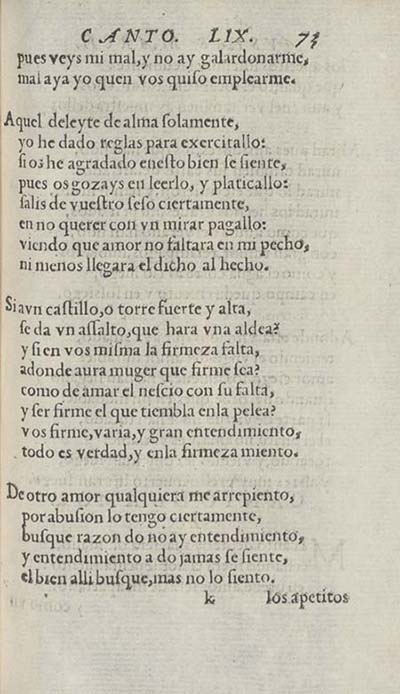 CANTO. LIX. 73
pues veys mi mal, y no ay galardonarme,
mal aya yo quen vos quiso emplearme.
Aquel deleyte de alma solamente,
yo he dado reglas para exercitallo:
si os he agradado enesto bien se siente,
pues os gozays en leerlo, y platicallo:
salis de vuestro seso ciertamente,
en no querer con vn mirar pagallo:
viendo que amor no faltara en mi pecho,
ni menos llegara el dicho al hecho.
Si avn castillo, o torre fuerte y alta,
se da vn assalto, que hara vna aldea?
y si en vos misma la firmeza falta,
adonde aura muger que firme sea?
como de amar el nescio con su falta,
y ser firme el que tiembla enla pelea?
vos firme, varia, y gran entendimiento,
todo es verdad, y enla firmeza miento.
De otro amor qualquiera me arrepiento,
por abusion lo tengo ciertamente,
busque razon do no ay entendimiento,
y entendimiento a do jamas se siente,
el bien alli busque, mas no lo siento.
k los apetitos